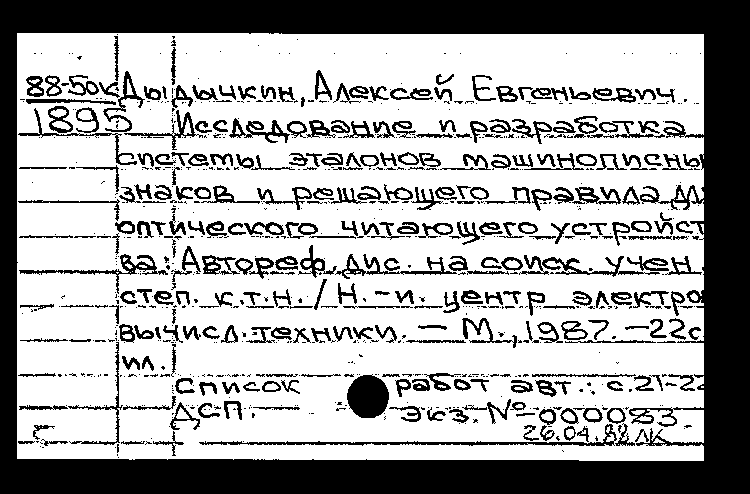 88-50к Дыдычкин, Алексей Евгеньевич.
1895 Исследование и разработка
системы эталонов машинописны
знаков и решающего правила дл
оптического читающего устройст
ва: Автореф. дис. на соиск. учен.
степ. к.т.н. / Н.-и. центр электро
вычисл. техники. — М., 1987. — 22с
ил.
Список работ авт.: с.21-22
ДСП. Экз. № 000083.
26.04.88 ЛК